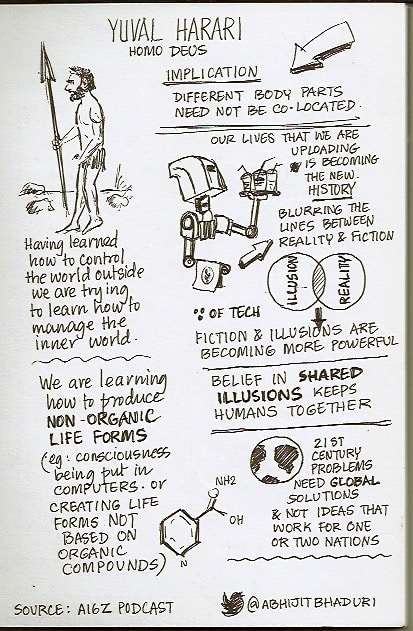 YUVAL HARARI
HOMO DEUS
IMPLICATION
DIFFERENT BODY PARTS
NEED NOT BE CO-LOCATED.
OUR LIVES THAT WE ARE
UPLOADING
IS BECOMING
THE NEW
HISTORY
BLURRING THE
LINES BETWEEN
REALITY & FICTION
ILLUSION
REALITY
∵ OF TECH
FICTION & ILLUSIONS ARE
BECOMING MORE POWERFUL
BELIEF IN SHARED
ILLUSIONS KEEPS
HUMANS TOGETHER
21ST
CENTURY
PROBLEMS
NEED GLOBAL
SOLUTIONS
& NOT IDEAS THAT
WORK FOR ONE
OR TWO NATIONS
Having learned
how to control
the world outside
we are trying
to learn how to
manage the
inner world.
We are learning
how to produce
NON-ORGANIC
LIFE FORMS
(eg: consciousness
being put in
COMPUTERS. OR
CREATING LIFE
FORMS NOT
BASED ON
ORGANIC
COMPOUNDS)
NH2
OH
N
SOURCE: A16Z PODCAST
@ABHIJITBHADURI